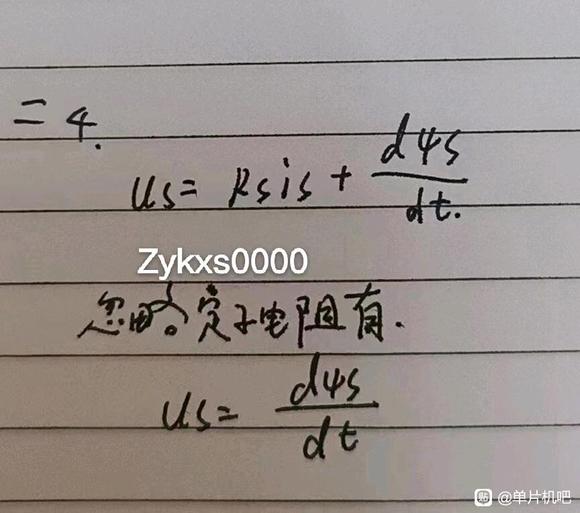 二 4.
us = Rsis + dψs/dt.
Zykxs0000
忽略定子电阻有.
us = dψs/dt
贴 @单片机吧